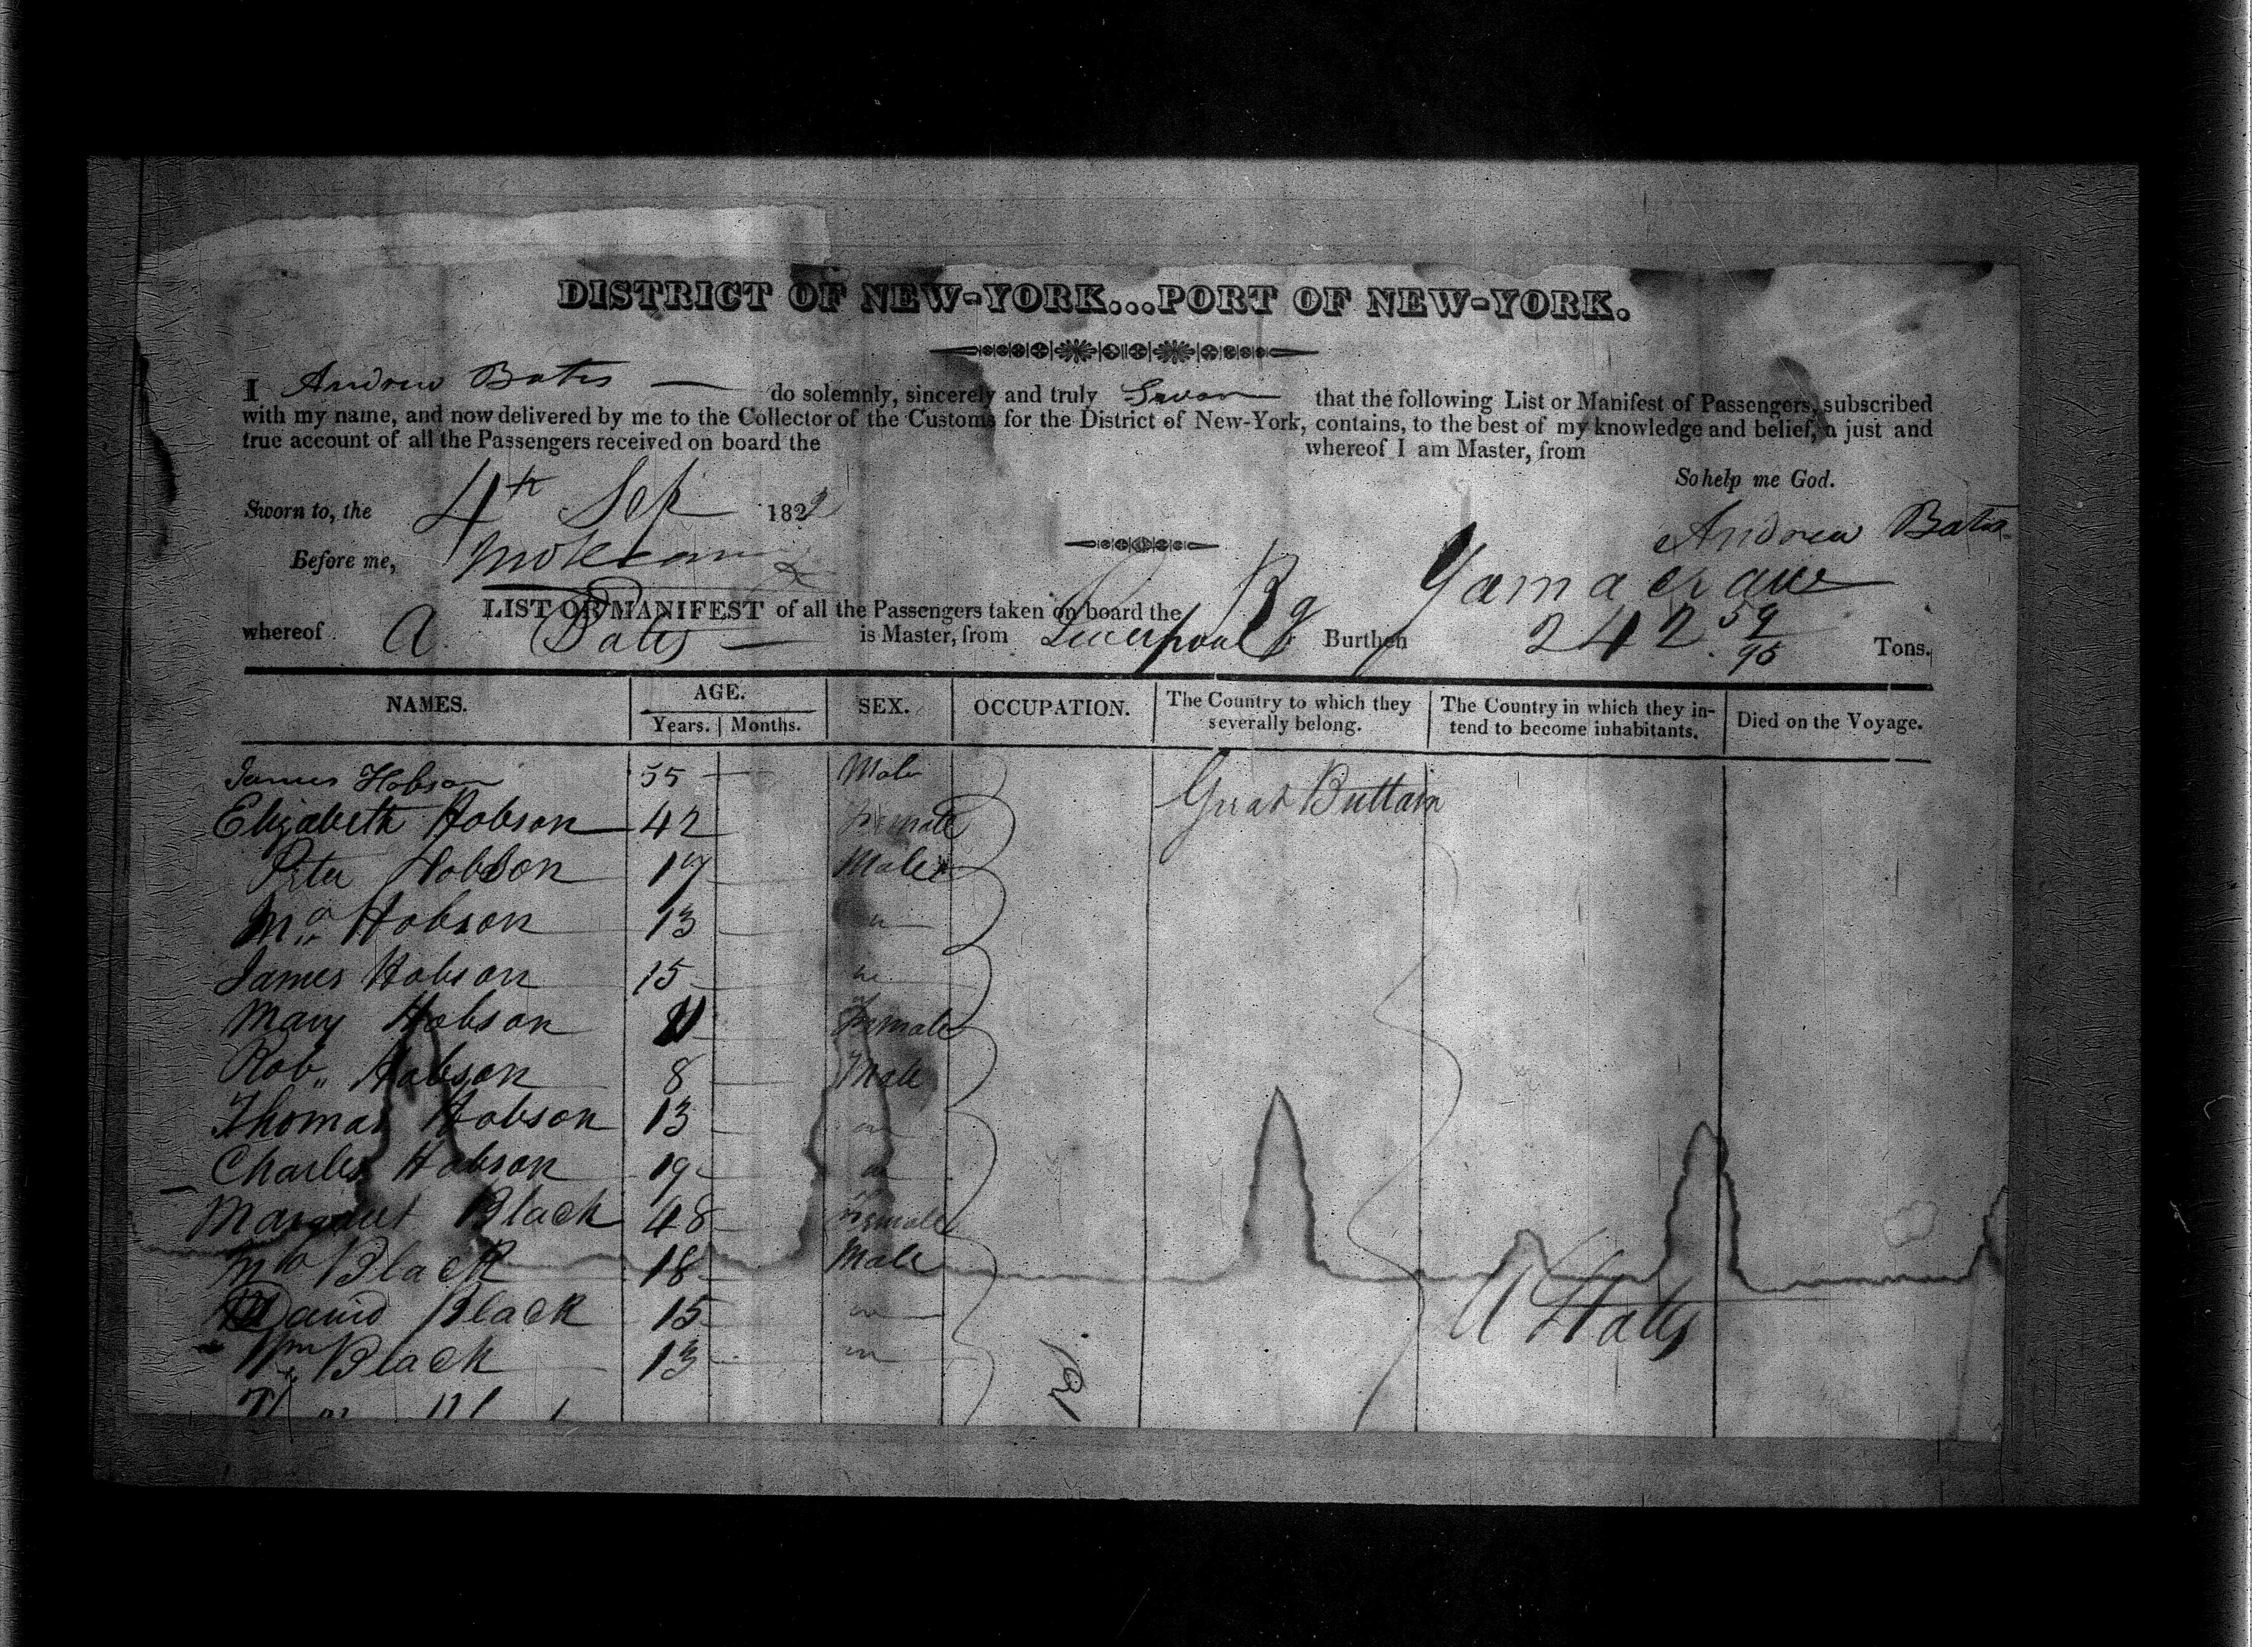 DISTRICT OF NEW-YORK...PORT OF NEW-YORK.
I Andrew Bates — do solemnly, sincerely and truly Swear that the following List or Manifest of Passengers, subscribed
with my name, and now delivered by me to the Collector of the Customs for the District of New-York, contains, to the best of my knowledge and belief, a just and
true account of all the Passengers received on board the whereof I am Master, from
So help me God.
Sworn to, the 4th Sep 1822
Andrew Bates
Before me,
LIST OR MANIFEST of all the Passengers taken on board the Bg Yamacraw
whereof A. Bates — is Master, from Liverpool Burthen 242 59/95 Tons.
NAMES. AGE. SEX. OCCUPATION. The Country to which they severally belong. The Country in which they intend to become inhabitants. Died on the Voyage.
Years. Months.
James Hobson 55 Male Great Brittain
Elizabeth Hobson 42 Female
Peter Hobson 17 Male
Hobson 13 "
James Hobson 15 "
Mary Hobson Female
Rob" Hobson 8 Male
Thomas Hobson 13 "
Charles Hobson 19 "
Margaret Black 48 Female
Black 18 Male
David Black 15 "
Wm Black 13 "
U States